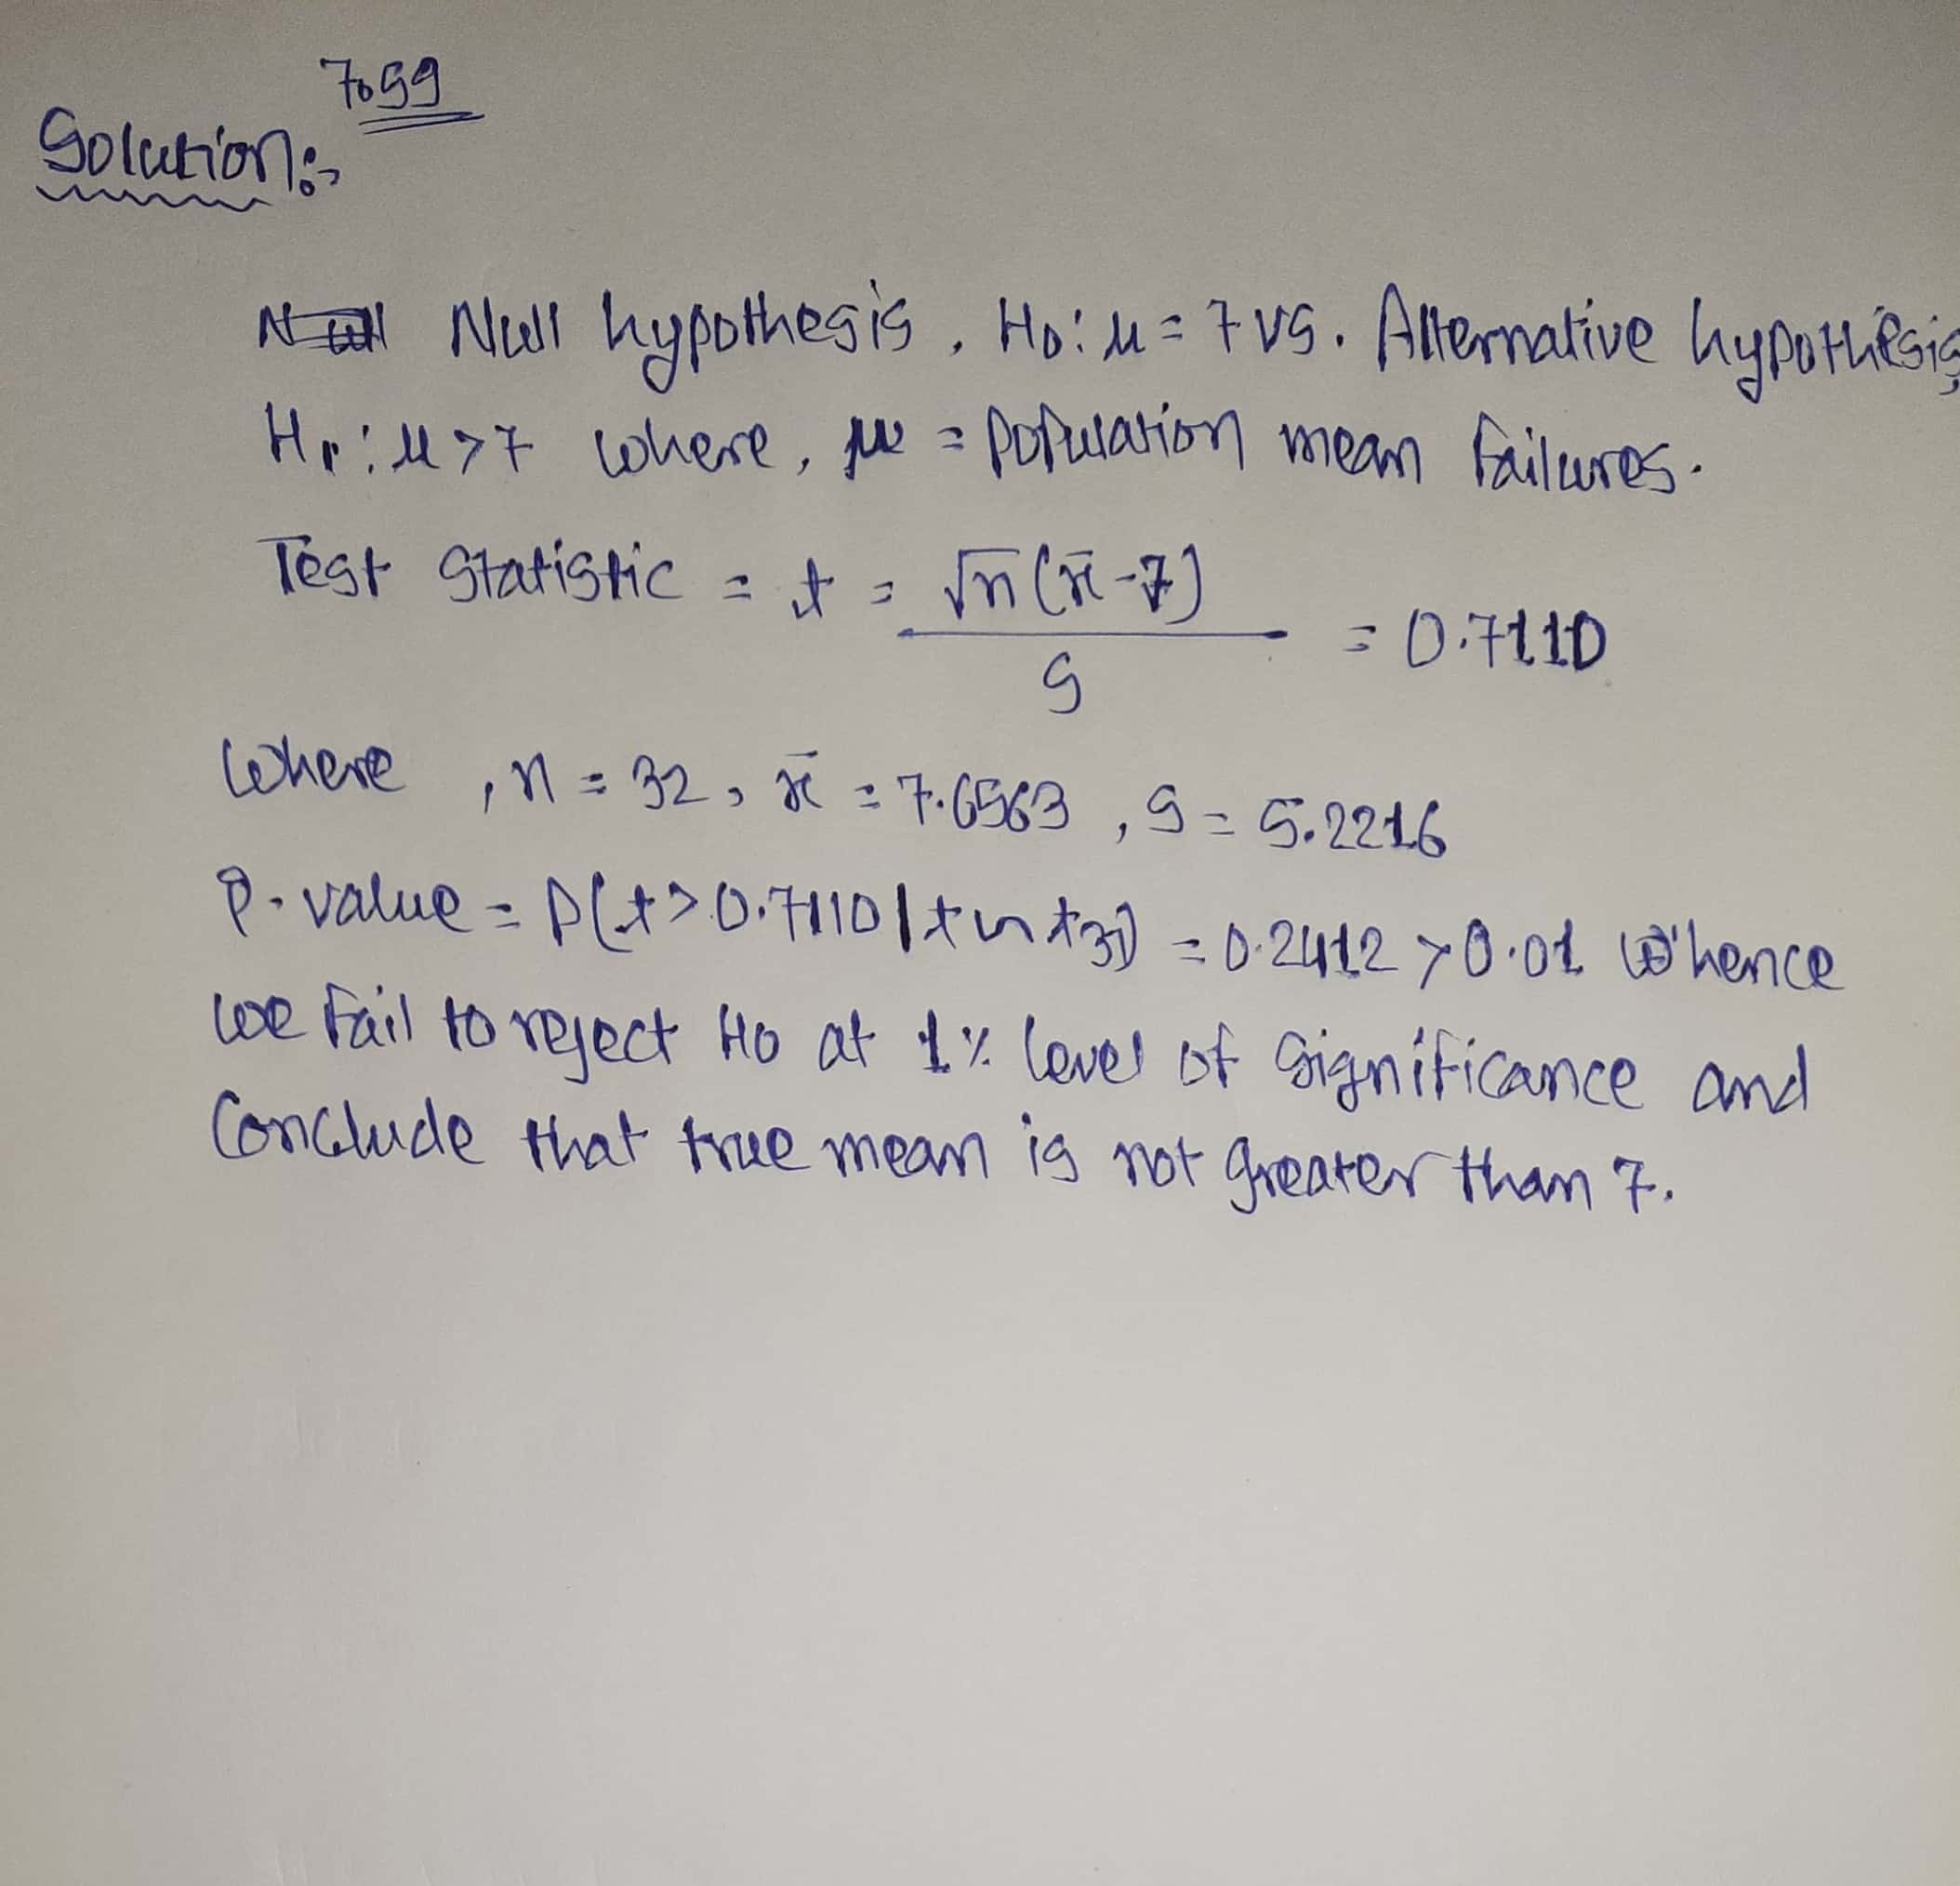 7099
Solution:-
Null hypothesis, H0: μ = 7 vs. Alternative hypothesis,
H1: μ > 7 where, μ = population mean failures.
Test statistic = t = √n(x̄-7) / s = 0.7110
where, n = 32, x̄ = 7.6563, s = 5.2216
P-value = P(t > 0.7110 | t ~ t31) = 0.2412 > 0.01 whence
we fail to reject H0 at 1% level of significance and
Conclude that true mean is not greater than 7.